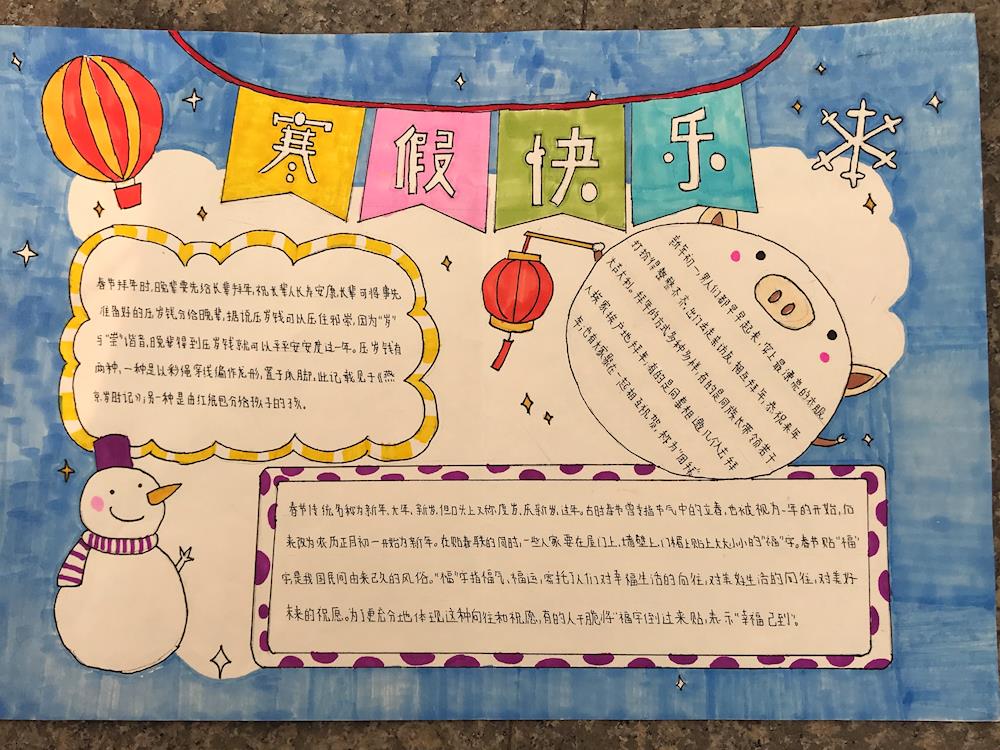 寒假快乐
春节拜年时,晚辈要先给长辈拜年,祝长辈人长寿安康,长辈可将事先
准备好的压岁钱分给晚辈,据说压岁钱可以压住邪祟,因为“岁”
与“祟”谐音,晚辈得到压岁钱就可以平平安安度过一年。压岁钱有
两种,一种是以彩绳穿线编作龙形,置于床脚,此记载见于《燕
京岁时记》;另一种是由红纸包分给孩子的钱。
新年初一人们都早早起来,穿上最漂亮的衣服,
打扮得整整齐齐,出门去走亲访友,相互拜年,恭祝来年
大吉大利。拜年的方式多种多样,有的是同族长带领若干
人挨家挨户地拜年;有的是同事相邀几个人去拜
年;也有大家聚在一起相互祝贺,称为“团拜”
春节传统名称为新年、大年、新岁,但口头上又称度岁、庆新岁、过年。古时春节曾专指节气中的立春,也被视为一年的开始,后
来改为农历正月初一开始为新年。在贴春联的同时,一些人家要在屋门上、墙壁上、门楣上贴上大大小小的“福”字。春节贴“福”
字,是我国民间由来已久的风俗。“福”字指福气、福运,寄托了人们对幸福生活的向往,对美好生活的向往,对美好
未来的祝愿。为了更充分地体现这种向往和祝愿,有的人干脆将“福字倒过来贴,表示“幸福已到”。